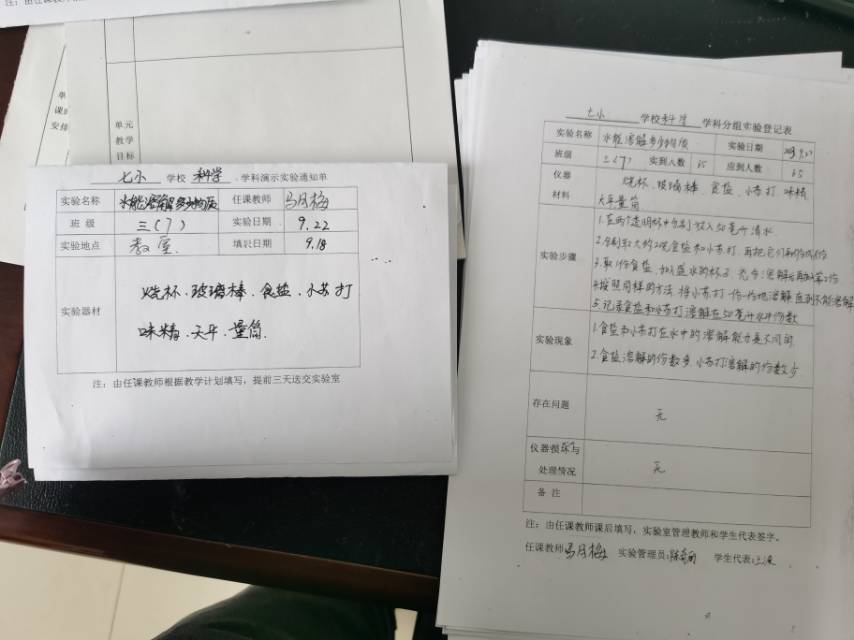 注：由任课教师
单元
教学
目标
七小 学校 科学 学科演示实验通知单
实验名称 水能溶解多少物质 任课教师 马月梅
班 级 三(7) 实验日期 9.22
实验地点 教室 填表日期 9.18
实验器材 烧杯、玻璃棒、食盐、小苏打
味精、天平、量筒、
注：由任课教师根据教学计划填写，提前三天送交实验室
七小 学校 科学 学科分组实验登记表
实验名称 水能溶解多少物质 实验日期
班级 三(7) 实到人数 65 应到人数 65
仪器 烧杯、玻璃棒、食盐、小苏打、味精
材料 天平量筒
实验步骤
1.在两个透明杯中分别放入50毫升清水
2.分别取大约20克食盐和小苏打,再把它们
3.取1份食盐,加入盛水的杯子,充分溶解后再加第2份
4.按照同样的方法,将小苏打一份一份地溶解,直到不能溶解
5.记录食盐和小苏打溶解在50毫升水中份数
实验现象
1.食盐和小苏打在水中的溶解能力是不同的
2.食盐溶解的份数多,小苏打溶解的份数少
存在问题 无
仪器损坏与
处理情况 无
备 注
注：由任课教师课后填写，实验室管理教师和学生代表签字。
任课教师 马月梅 实验管理员: 学生代表: